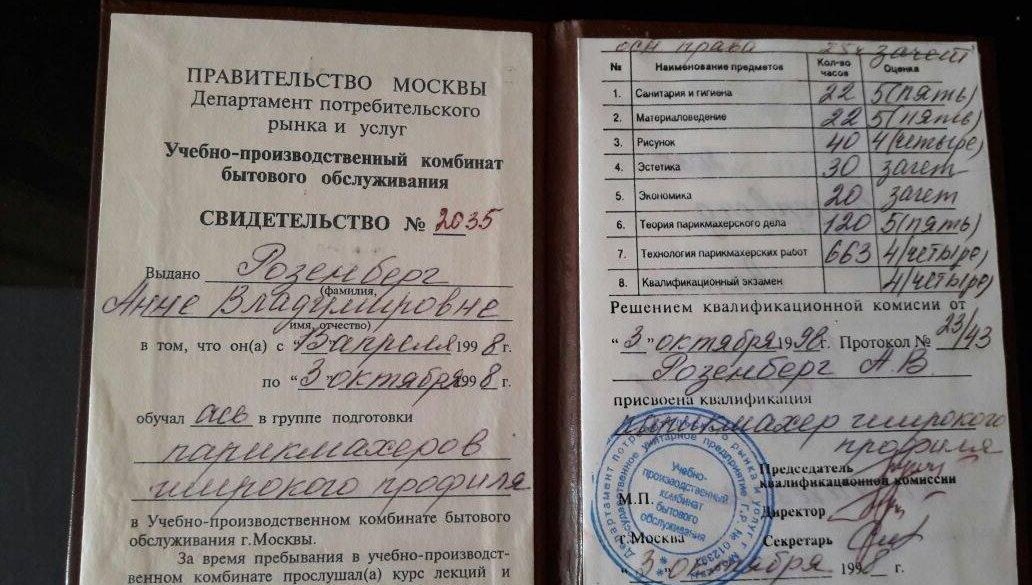 ПРАВИТЕЛЬСТВО МОСКВЫ
Департамент потребительского
рынка и услуг
Учебно-производственный комбинат
бытового обслуживания
СВИДЕТЕЛЬСТВО № 2635
Выдано Розенберг
(фамилия,
Анне Владимировне
имя, отчество)
в том, что он(а) с 13 апреля 1998 г.
по "3" октября 1998 г.
обучал ась в группе подготовки
парикмахеров
широкого профиля
в Учебно-производственном комбинате бытового
обслуживания г.Москвы.
За время пребывания в учебно-производст-
венном комбинате прослушал(а) курс лекций и
осн права 25ч зачет
№ Наименование предметов Кол-во часов Оценка
1. Санитария и гигиена 22 5(пять)
2. Материаловедение 22 5(пять)
3. Рисунок 40 4(четыре)
4. Эстетика 30 зачет
5. Экономика 20 зачет
6. Теория парикмахерского дела 120 5(пять)
7. Технология парикмахерских работ 663 4(четыре)
8. Квалификационный экзамен 4(четыре)
Решением квалификационной комисии от
"3" октября 1998г. Протокол № 23/43
Розенберг А.В
присвоена квалификация
парикмахер широкого
профиля
Председатель
квалификационной комиссии
М.П.
Директор
г.Москва Секретарь
"3" октября 1998 г.
Учебно-
производственный
комбинат
бытового
обслуживания